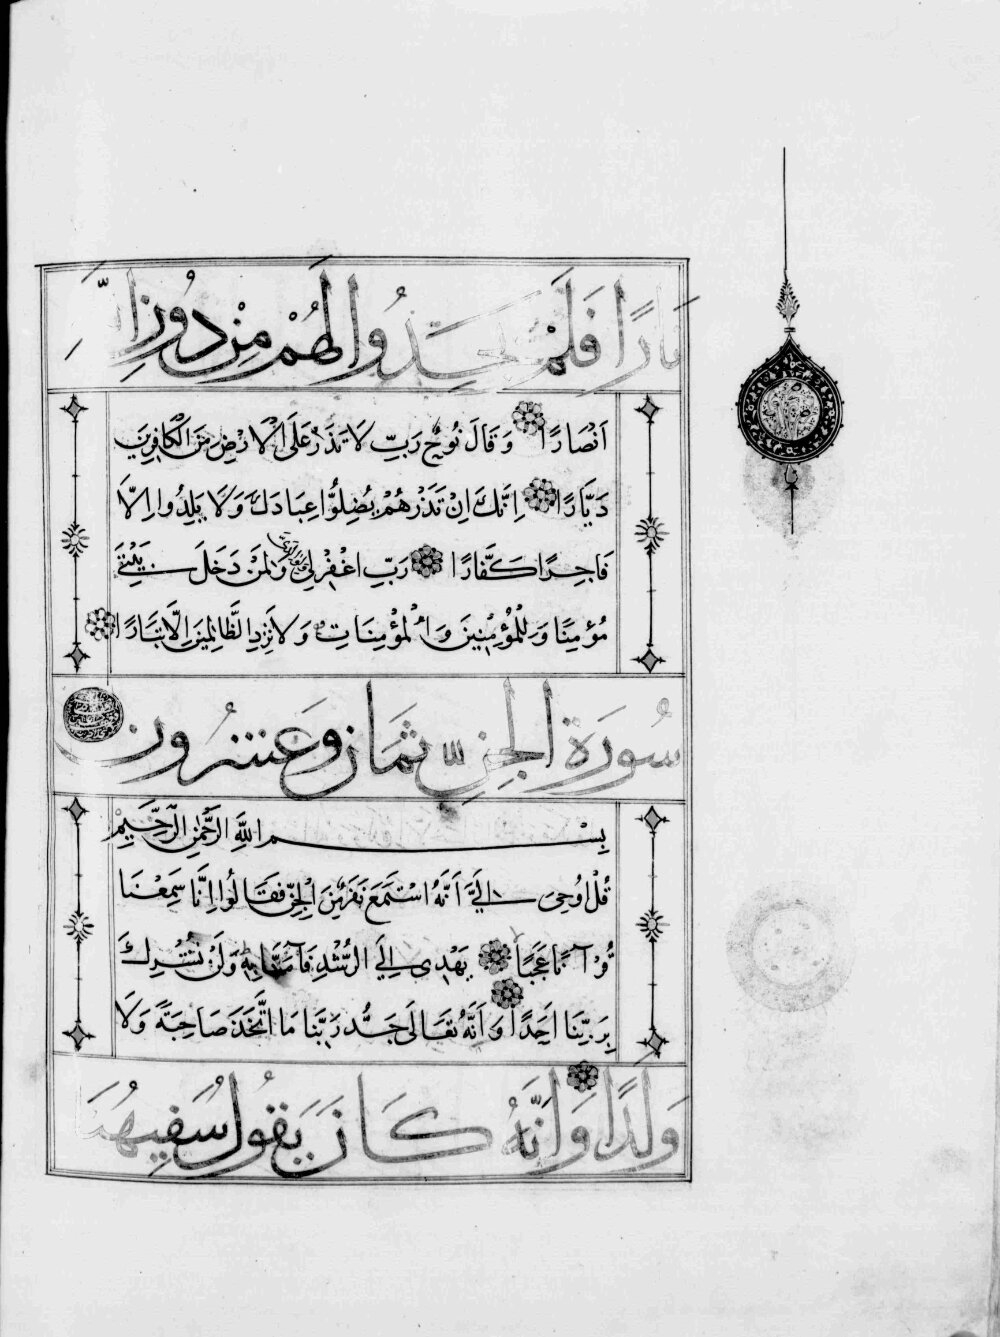 نَارًا فَلَمْ يَجِدُوا لَهُمْ مِنْ دُونِ اللَّهِ
اَنْصَارًا وَقَالَ نُوحٌ رَبِّ لَا تَذَرْ عَلَى الْاَرْضِ مِنَ الْكَافِرِينَ
دَيَّارًا اِنَّكَ اِنْ تَذَرْهُمْ يُضِلُّوا عِبَادَكَ وَلَا يَلِدُوا اِلَّا
فَاجِرًا كَفَّارًا رَبِّ اغْفِرْ لِي وَلِمَنْ دَخَلَ بَيْتِيَ
مُؤْمِنًا وَلِلْمُؤْمِنِينَ وَالْمُؤْمِنَاتِ وَلَا تَزِدِ الظَّالِمِينَ اِلَّا تَبَارًا
سُورَةُ الْجِنِّ ثَمَانٍ وَعِشْرُونَ
بِسْمِ اللَّهِ الرَّحْمٰنِ الرَّحِيمِ
قُلْ اُوحِيَ اِلَيَّ اَنَّهُ اسْتَمَعَ نَفَرٌ مِنَ الْجِنِّ فَقَالُوا اِنَّا سَمِعْنَا
قُرْآنًا عَجَبًا يَهْدِي اِلَى الرُّشْدِ فَآمَنَّا بِهِ وَلَنْ نُشْرِكَ
بِرَبِّنَا اَحَدًا وَاَنَّهُ تَعَالَى جَدُّ رَبِّنَا مَا اتَّخَذَ صَاحِبَةً وَلَا
وَلَدًا وَاَنَّهُ كَانَ يَقُولُ سَفِيهُنَا